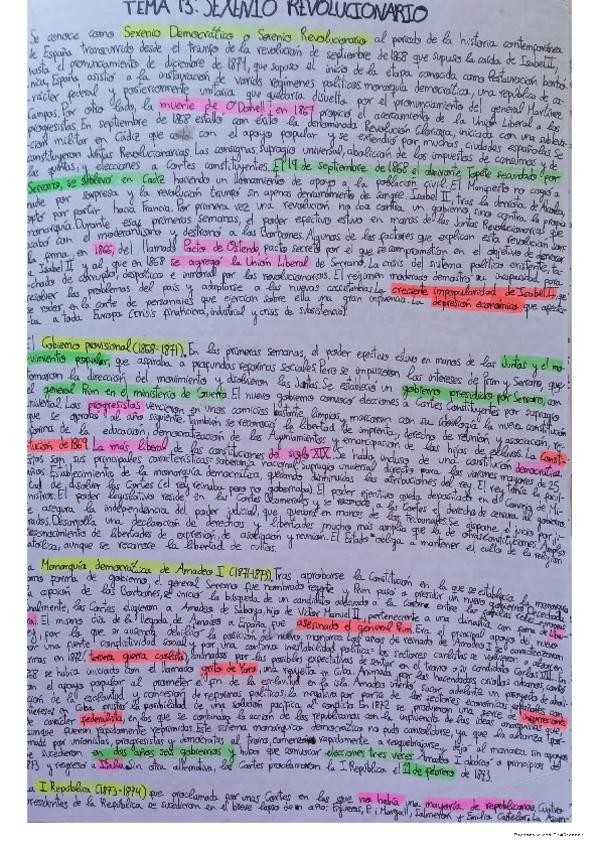 TEMA 13: SEXENIO REVOLUCIONARIO
Se conoce como Sexenio Democrático o Sexenio Revolucionario al periodo de la historia contemporánea
de España transcurrido desde el triunfo de la revolución de septiembre de 1868 que supuso la caída de Isabel II,
hasta el pronunciamiento de diciembre de 1874, que supuso el inicio de la etapa conocada como Restauración borbó-
nica, España asistió a la instauración de varios regímenes políticos: monarquía democrática, una república de ca-
rácter federal y posteriormente unitaria que quedaría disuelta por el pronunciamiento del general Martínez
Campos. Por otro lado, la muerte de O'Donell, en 1867 propició el acercamiento de la Unión Liberal a los
progresistas. En septiembre de 1868 estalló con éxito la denominada Revolución Gloriosa, iniciada con una subleva-
ción militar en Cádiz que con el apoyo popular y se extendió por muchas ciudades españolas. Se
constituyeron Juntas Revolucionarias. Las consignas: sufragio universal, abolición de los impuestos de consumos y de
las quintas, y elecciones a Cortes constituyentes. El 19 de septiembre de 1868 el almirante Topete secundado por
Serrano, se sublevó en Cádiz haciendo un llamamiento de apoyo a la población civil. El Manifiesto no cogió a
nadie por sorpresa y la revolución triunfó sin apenas derramamiento de sangre. Isabel II, tras la derrota de Alcolea,
optó por partir hacia Francia. Por primera vez una revolución no iba contra un gobierno, sino contra la propia
monarquía. Durante esas primeras semanas, el poder efectivo estuvo en manos de las Juntas Revolucionarias que
acabó con el moderantismo y destronó a los Borbones. Algunos de los factores que explican esta revolución son:
la firma, en 1866, del llamado Pacto de Ostende, pacto secreto por el que se comprometían en el objetivo de derrocar
a Isabel II y al que en 1868 se agregó la Unión Liberal de Serrano. La crisis del sistema político existente, ta-
chado de absoluto, despótico e inmoral por los revolucionarios. El régimen moderado demostró su incapacidad para
resolver los problemas del país y adaptarse a las nuevas circunstancias. La creciente impopularidad de Isabel II, que
se rodeó, en la corte de personajes que ejercían sobre ella una gran influencia. La depresión económica que afecta-
ba a toda Europa (crisis financiera, industrial y crisis de subsistencia).
El Gobierno provisional (1868-1871). En las primeras semanas, el poder efectivo estuvo en manos de las Juntas y el mo-
vimiento popular, que aspiraba a profundas reformas sociales. Pero se impusieron los intereses de Prim y Serrano, que
tomaron la dirección del movimiento y disolvieron las Juntas. Se estableció un gobierno presidido por Serrano, con
el general Prim en el ministerio de Guerra. El nuevo gobierno convocó elecciones a Cortes Constituyentes por sufragio
universal. Los progresistas vencieron en unos comicios bastante limpios, marcaron con su ideología la nueva constitución
que se aprobó al año siguiente. También se reconoció la libertad de imprenta, derecho de reunión y asociación, re-
forma de la educación, democratización de los Ayuntamientos y emancipación de los hijos de esclavos. La Consti-
tución de 1869. La más liberal de las constituciones del siglo XIX. Se habla incluso de una constitución democrática.
Estas son sus principales características: soberanía nacional. Sufragio universal directo para los varones mayores de 25
años. Establecimiento de la monarquía democrática, quedando disminuidas las atribuciones del rey. El rey tenía la facul-
tad de disolver las Cortes (el rey reinaba pero no gobernaba). El poder ejecutivo queda depositado en el Consejo de Mi-
nistros. El poder legislativo reside en las Cortes Bicamerales y se reconoce a las Cortes el derecho de censura al gobierno.
Se asegura la independencia del poder judicial, que quedará en manos de los Tribunales. Se dispone el juicio por ju-
rados. Desarrolla una declaración de derechos y libertades mucho más amplia que la de otras constituciones. Amplio
reconocimiento de libertades de expresión, de asociación y reunión. El Estado obliga a mantener el culto de la religión
católica, aunque se reconoce la libertad de cultos.
La Monarquía democrática de Amadeo I (1871-1873). Tras aprobarse la Constitución en la que se establecía la monarquía
como forma de gobierno, el general Serrano fue nombrado regente y Prim pasó a presidir un nuevo gobierno. Descartada
la opción de los Borbones, se inició la búsqueda de un candidato adecuado a la Corona entre las
Finalmente, las Cortes eligieron a Amadeo de Saboya, hijo de Víctor Manuel II, perteneciente a una dinastía con fama de libe-
ral. El mismo día de la llegada de Amadeo a España, fue asesinado el general Prim. Era el principal apoyo del nuevo
rey, por lo que su ausencia debilitó la posición del nuevo monarca. Los años de reinado de Amadeo I se caracterizaron
por una fuerte conflictividad social y por una continua inestabilidad política: los sectores carlistas se volvieron a alzar en
armas en 1872, tercera guerra carlista, animados por las posibles expectativas de sentar en el trono a su candidato Carlos VII. En
1868 se había iniciado con el llamado grito de Yara, una revuelta en Cuba. Animada por los hacendados criollos, contó
con el apoyo popular al prometer el fin de la esclavitud en la isla. Amadeo intentó sacar adelante un proyecto de aboli-
ción de la esclavitud y concesión de reformas políticas; la negativa por parte de los sectores económicos españoles con
intereses en Cuba frustró la posibilidad de una solución pacífica al conflicto. En 1872 se produjeron una serie de insurrecciones
de carácter federalista, en las que se combinaba la acción de los republicanos con la influencia de las ideas anarquistas que,
aunque fueron rápidamente reprimidas. Este sistema monárquico democrático no pudo consolidarse, ya que la alianza for-
mada por unionistas, progresistas y demócratas al trono comenzó rápidamente a resquebrajarse y dejó al monarca sin apoyos
Se sucedieron en dos años seis gobiernos y hubo que convocar elecciones tres veces. Amadeo I abdicó a principios de
1873 y regresó a Italia. Sin otra alternativa, las Cortes proclamaron la I República el 11 de febrero de 1873.
La I República (1873-1874), que proclamada por unas Cortes en las que no había una mayoría de republicanos. Cuatro
presidentes de la República se sucedieron en el breve lapso de un año: Figueras, Pi i Margall, Salmerón y Emilio Castelar. La Asam-